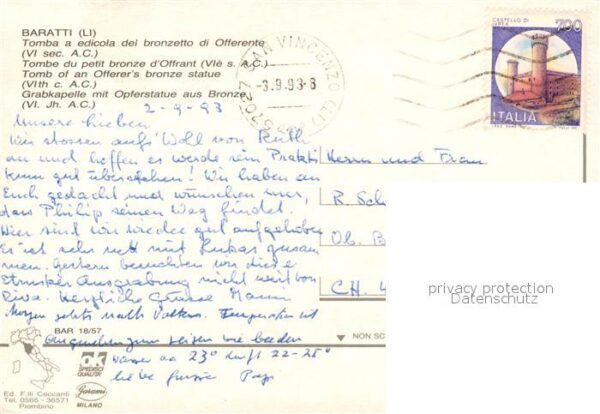 BARATTI (LI)
Tomba a edicola del bronzetto di Offerente
(VI sec. A.C.)
Tombe du petit bronze d'Offrant (VIè s. A.C.)
Tomb of an Offerer's bronze statue
(VIth c. A.C.)
Grabkapelle mit Opferstatue aus Bronze
(VI. Jh. A.C.)
57027 SAN VINCENZO (LI)
-3.9.93-8
CASTELLO DI
IVREA
700
ITALIA
2-9-93
Unsere Lieben
Wir stossen aufs Wohl von Ruth
an und hoffen es werde sein Prakti
kum gut überstehen! Wir haben an
Euch gedacht und wünschen nur,
dass Philip seinen Weg findet.
Hier sind wir wieder gut aufgehoben
Es ist sehr nett mit Lukas zusam
men. Gestern besuchten wir diese
Etrusker Ausgrabung nicht weit von
Riva. Herzliche Grüsse Mann
Morgen gehts nach Temperatur ist
angenehm zum reisen wie baden
Wasser ca 23° Luft 22-25°
liebe Grüsse Papi
Herrn und Frau
R. Sch
Ob. B
CH. 4
privacy protection
Datenschutz
BAR 18/57
NON SC
Ed. F.lli Ceccanti
Tel. 0565 - 36571
Piombino
ok
SPEDISCI
QUALITA'
Garami
MILANO